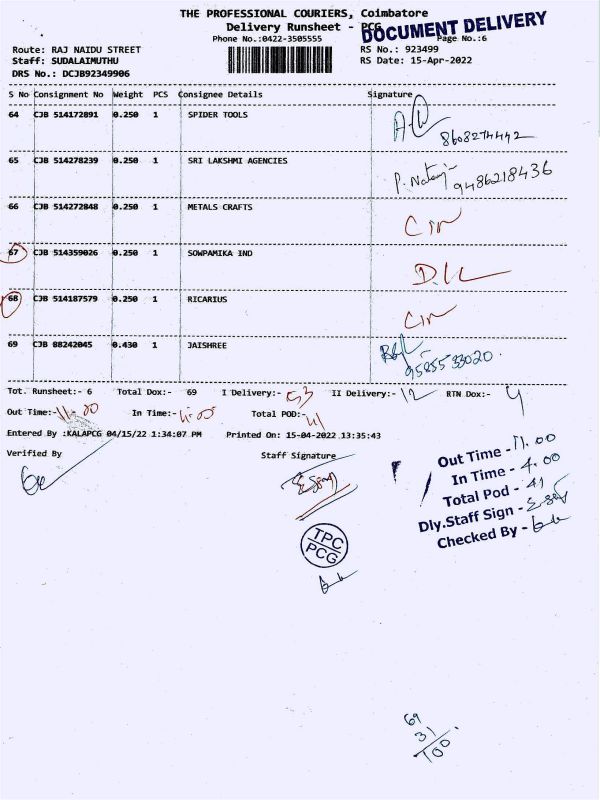 THE PROFESSIONAL COURIERS, Coimbatore
Delivery Runsheet - PCG
DOCUMENT DELIVERY
Phone No.:0422-3505555
Page No.:6
Route: RAJ NAIDU STREET
RS No.: 923499
Staff: SUDALAIMUTHU
RS Date: 15-Apr-2022
DRS No.: DCJB92349906
S No Consignment No Weight PCS Consignee Details Signature
64 CJB 514172891 0.250 1 SPIDER TOOLS
8608274442
65 CJB 514278239 0.250 1 SRI LAKSHMI AGENCIES
9486218436
66 CJB 514272848 0.250 1 METALS CRAFTS
67 CJB 514359026 0.250 1 SOWPAMIKA IND
D.L
68 CJB 514187579 0.250 1 RICARIUS
69 CJB 88242045 0.430 1 JAISHREE
9585533020.
Tot. Runsheet:- 6 Total Dox:- 69 I Delivery:- 53 II Delivery:- 12 RTN Dox:- 4
Out Time:- 11.00 In Time:- 4.00 Total POD:- 41
Entered By :KALAPCG 04/15/22 1:34:07 PM Printed On: 15-04-2022 13:35:43
Verified By Staff Signature
Out Time - 11.00
In Time - 4.00
Total Pod - 41
Dly.Staff Sign -
Checked By -
TPC
PCG
69
31
100